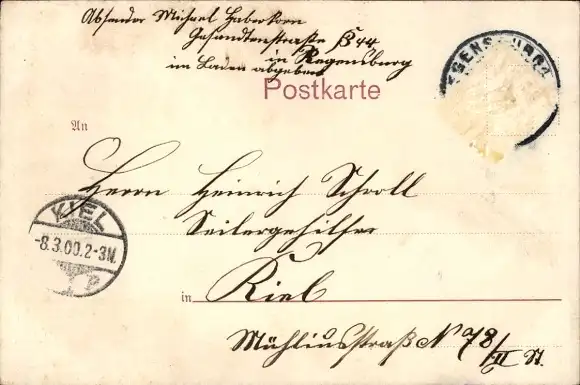 Absender Michael Haberkorn
Gesandtenstraße B 44
in Regensburg
im Laden abgeben
Postkarte
REGENSBURG
An
Herrn Heinrich Schroll
Seilergehilfe
KIEL
-8.3.00.2-3N.
1 P
in Kiel
Mühliusstraße N 78/II St.